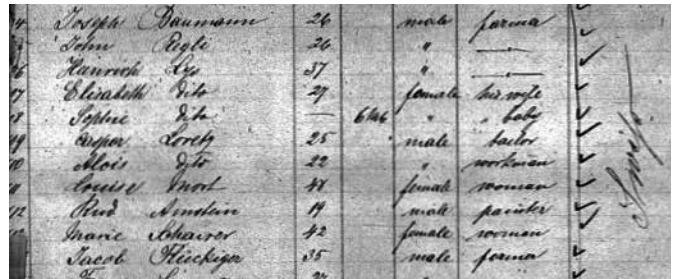 Joseph Baumann 26 male farmer
John Regli 26 "
Heinrich Lys 37 "
Elisabeth dito 27 female his wife
Sophie dito — 6 M6 " " baby
Casper Loretz 25 male tailor
Alois dito 22 " workman
Louise 48 female woman
Rud Amstein 19 male painter
Marie Schairer 42 female woman
Jacob Flückiger 35 male farmer
Swiss